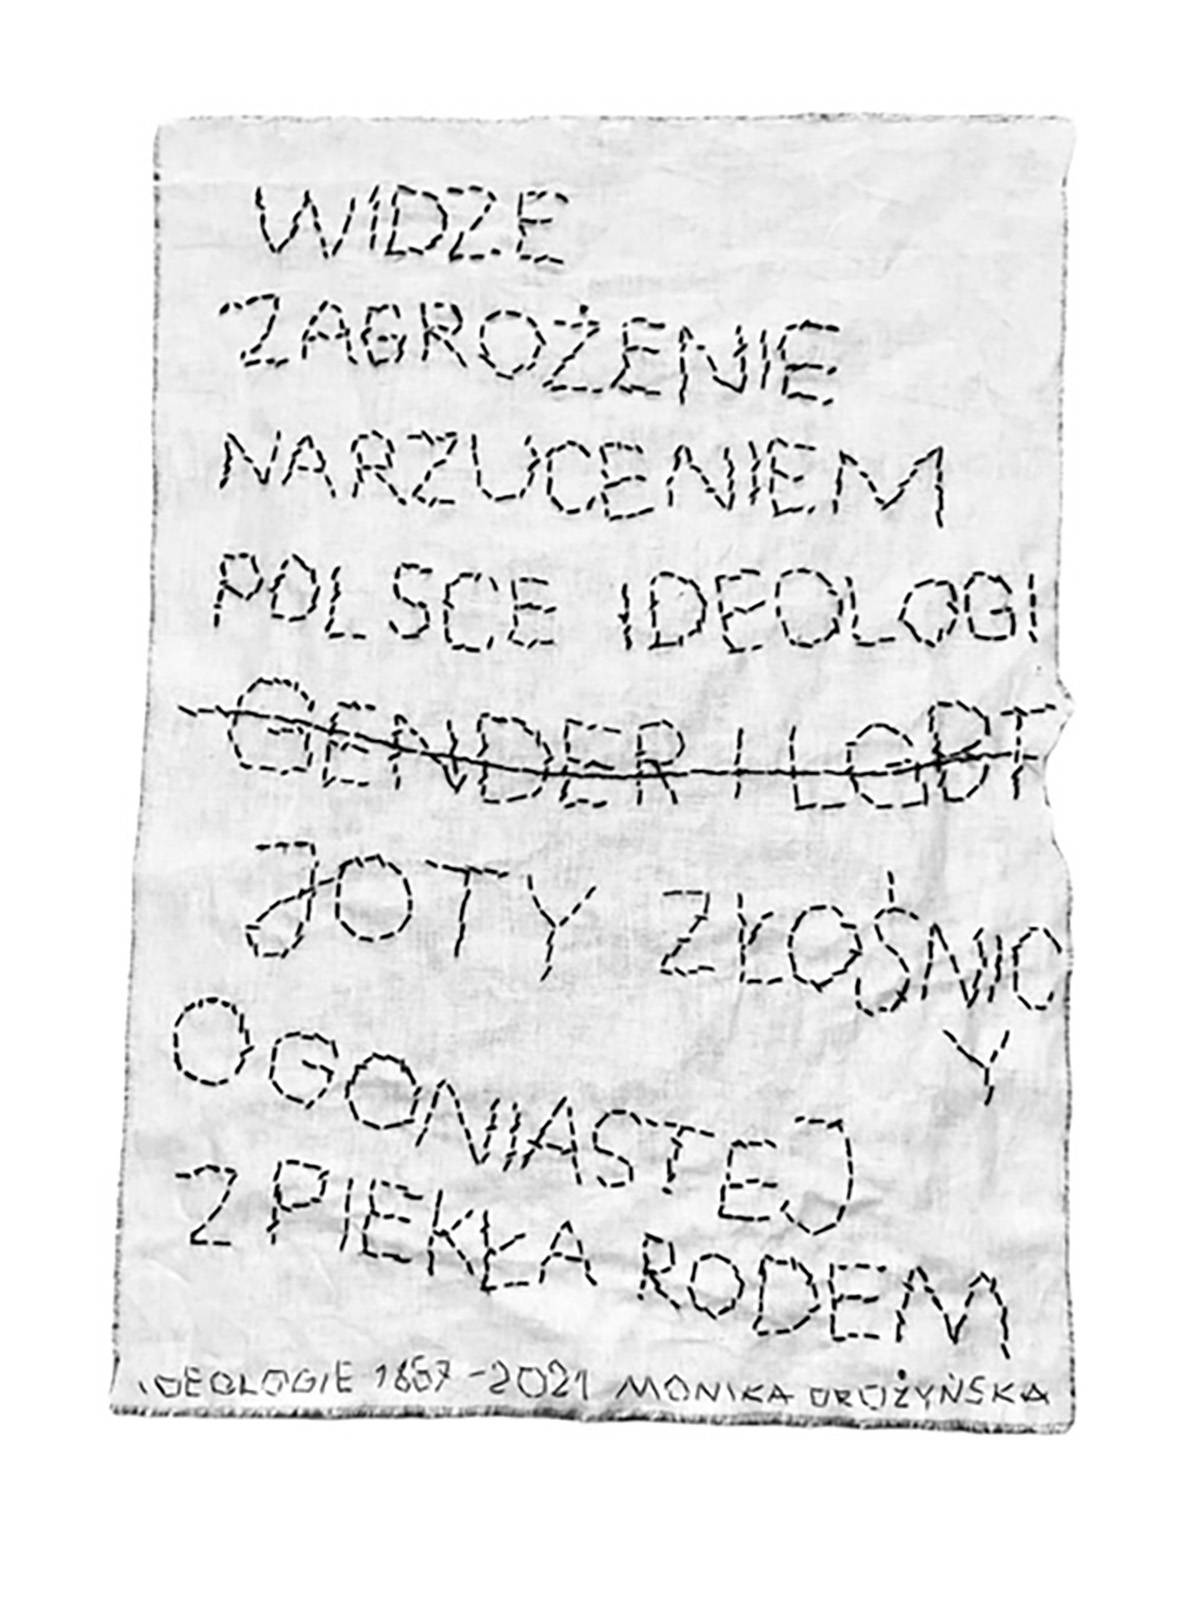 WIDZE
ZAGROŻENIE
NARZUCENIEM
POLSCE IDEOLOGI
GENDER I LGBT
JOTY ZŁOŚNIC
Y
OGONIASTEJ
Z PIEKŁA RODEM
IDEOLOGIE 1867-2021 MONIKA DROŻYŃSKA